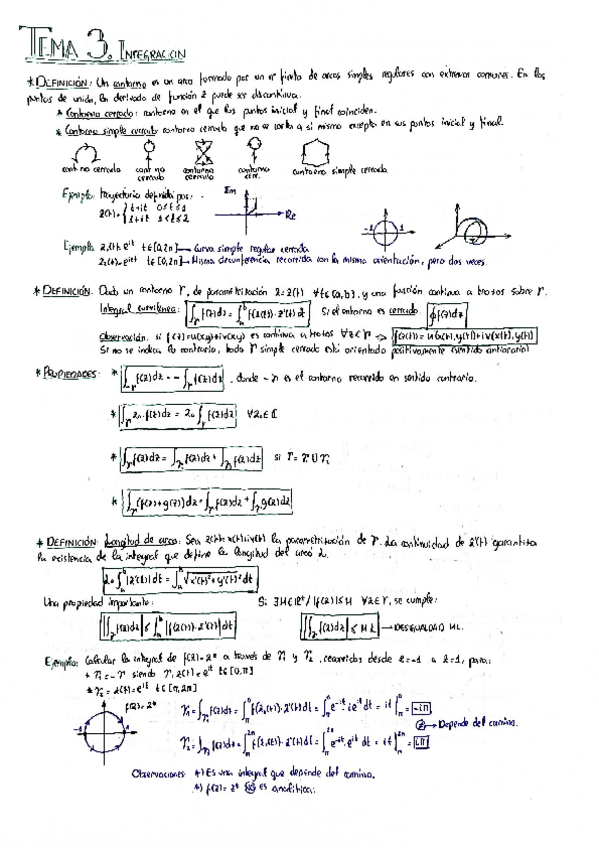 TEMA 3. INTEGRACIÓN
* DEFINICIÓN: Un contorno es un arco formado por un nº finito de arcos simples regulares con extremos comunes. En los
puntos de unión, la derivada de función z puede ser discontinua.
* Contorno cerrado: contorno en el que los puntos inicial y final coinciden.
* Contorno simple cerrado: contorno cerrado que no se corta a si mismo excepto en sus puntos inicial y final.
cont no cerrado
cont no cerrado
contorno cerrado
contorno
contorno simple cerrado
Ejemplo: trayectoria definida por:
z(t) = { t+it 0≤t≤1
1+it 1≤t≤2
Im
Re
-1
1
Ejemplo: z₁(t) = e^it t∈[0,2π] → Curva simple regular cerrada
z₂(t) = e^it t∈[0,2π] → Misma circunferencia recorrida con la misma orientación, pero dos veces.
* DEFINICIÓN: Dado un contorno γ, de parametrización z=z(t) ∀t∈[a,b], y una función continua a trozos sobre γ.
Integral curvilínea: ∫γ f(z)dz = ∫ₐᵇ f(z(t))·z'(t)dt Si el contorno es cerrado: ∮f(z)dz
Observación: si f(z)=u(x,y)+iv(x,y) es continua a trozos ∀z∈γ => f(z(t)) = u(x(t),y(t))+iv(x(t),y(t))
Si no se indica lo contrario, todo γ simple cerrado está orientado positivamente (sentido antihorario)
* PROPIEDADES: * ∫-γ f(z)dz = -∫γ f(z)dz , donde -γ es el contorno recorrido en sentido contrario.
* ∫γ z₀·f(z)dz = z₀∫γ f(z)dz ∀z₀∈ℂ
* ∫γ f(z)dz = ∫γ₁ f(z)dz + ∫γ₂ f(z)dz si γ = γ₁∪γ₂
* ∫γ (f(z)+g(z))dz = ∫γ f(z)dz + ∫γ g(z)dz
* DEFINICIÓN: Longitud de arco: Sea z(t)=x(t)+iy(t) la parametrización de γ. La continuidad de z'(t) garantiza
la existencia de la integral que define la longitud del arco L.
L = ∫ₐᵇ |z'(t)|dt = ∫ₐᵇ √x'(t)²+y'(t)² dt
Una propiedad importante: Si ∃M∈ℝ⁺/ |f(z)|≤M ∀z∈γ, se cumple:
|∫γ f(z)dz| ≤ ∫ₐᵇ |f(z(t))·z'(t)|dt |∫γ f(z)dz| ≤ ML → DESIGUALDAD ML.
Ejemplo: Calcular la integral de f(z)=z* a través de γ₁ y γ₂, recorridos desde z=-1 a z=1, para:
* γ₁ = -γ siendo γ, z(t)=e^it t∈[0,π]
* γ₂ = z(t)=e^it t∈[π,2π]
f(z)=z*
-1
1
γ₁ = ∫γ₁ f(z)dz = ∫π⁰ f(z(t))·z'(t)dt = ∫π⁰ e^-it·ie^it dt = it|π⁰ = -iπ
Depende del camino.
γ₂ = ∫γ₂ f(z)dz = ∫π²π f(z(t))·z'(t)dt = ∫π²π e^-it·ie^it dt = it|π²π = iπ
Observaciones: *) Es una integral que depende del camino.
*) f(z)=z* no es analítica.